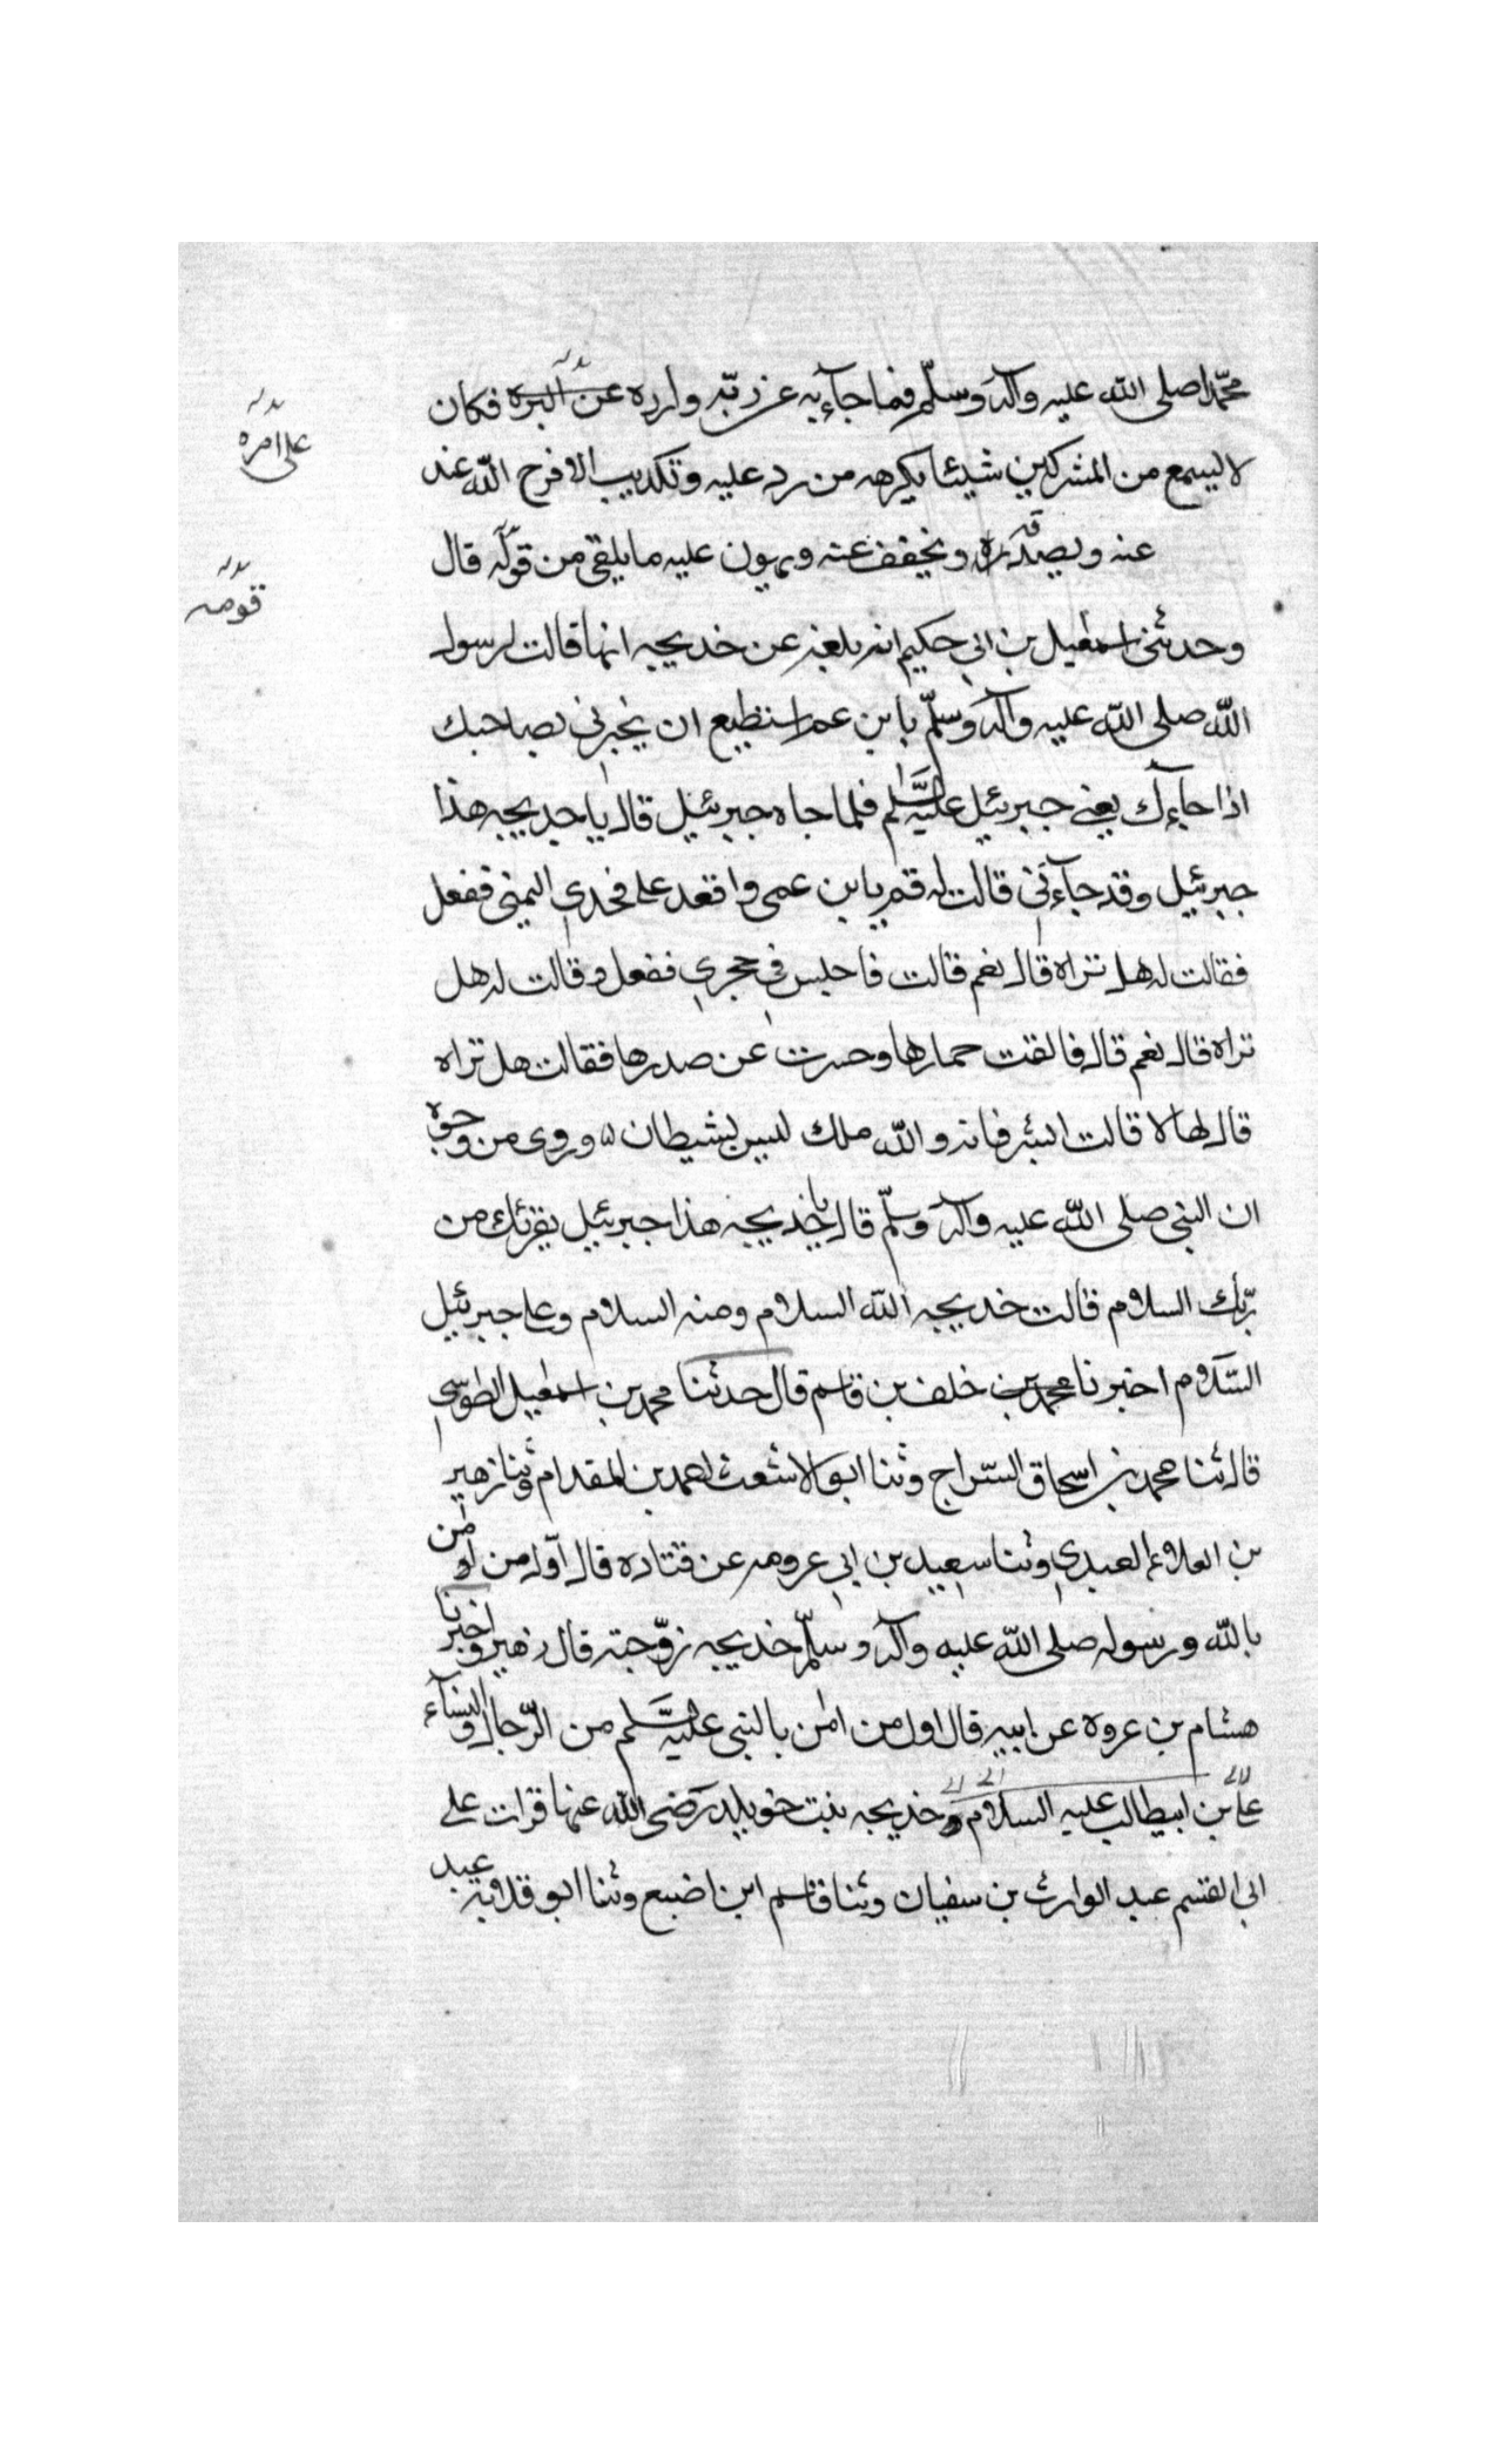 محمّدا صلى الله عليه وآله وسلّم فيما جآء به عن ربّه وازره عن البره فكان
على امره
لا يسمع من المشركين شيئا يكرهه من رد عليه وتكذيب الا فرج الله عنه
عنه ويصدقه ويخفف عنه ويهون عليه ما يلقى من قوله قال
قومه
وحدثنى اسمعيل بن ابي حكيم انه بلغه عن خديجه انها قالت لرسول
الله صلى الله عليه وآله وسلّم يا بن عم استطيع ان يخبرني بصاحبك
اذا جاءك يعني جبرئيل عليه السّلم فلما جاه جبرئيل قال يا خديجه هذا
جبرئيل وقد جآءني قالت له قم يا بن عمى واقعد على فخدي اليمنى ففعل
فقالت له هل تراه قال نعم قالت فاجلس في حجري ففعل وقالت له هل
تراه قال نعم قال فالقت حمارها وحسرت عن صدرها فقالت هل تراه
قال لها لا قالت ابشر فانه والله ملك ليس بشيطان وروى من وجوه
ان النبي صلى الله عليه وآله وسلّم قال يا خديجه هذا جبرئيل يقرئك من
ربّك السلام قالت خديجه الله السلام ومنه السلام وعلى جبرئيل
السّلام اخبرنا محمد بن خلف بن قاسم قال حدثنا محمد بن اسمعيل الطوسي
قال ثنا محمد بن اسحاق السّراج وثنا ابو الاشعث احمد بن المقدام وثنا زهير
بن العلاء العبدي وثنا سعيد بن ابي عروبه عن قتاده قال اوّل من امن
بالله ورسوله صلى الله عليه وآله وسلّم خديجه زوّجته قال زهير واخبرنا
هشام بن عروه عن ابيه قال اول من امن بالنبى عليه السّلم من الرّجال والنسآء
على بن ابيطالب عليه السلام وخديجه بنت خويلد رضى الله عنها قرات على
ابي القسم عبد الوارث بن سفيان وثنا قاسم ابن اضبع وثنا ابو قلابه عبد